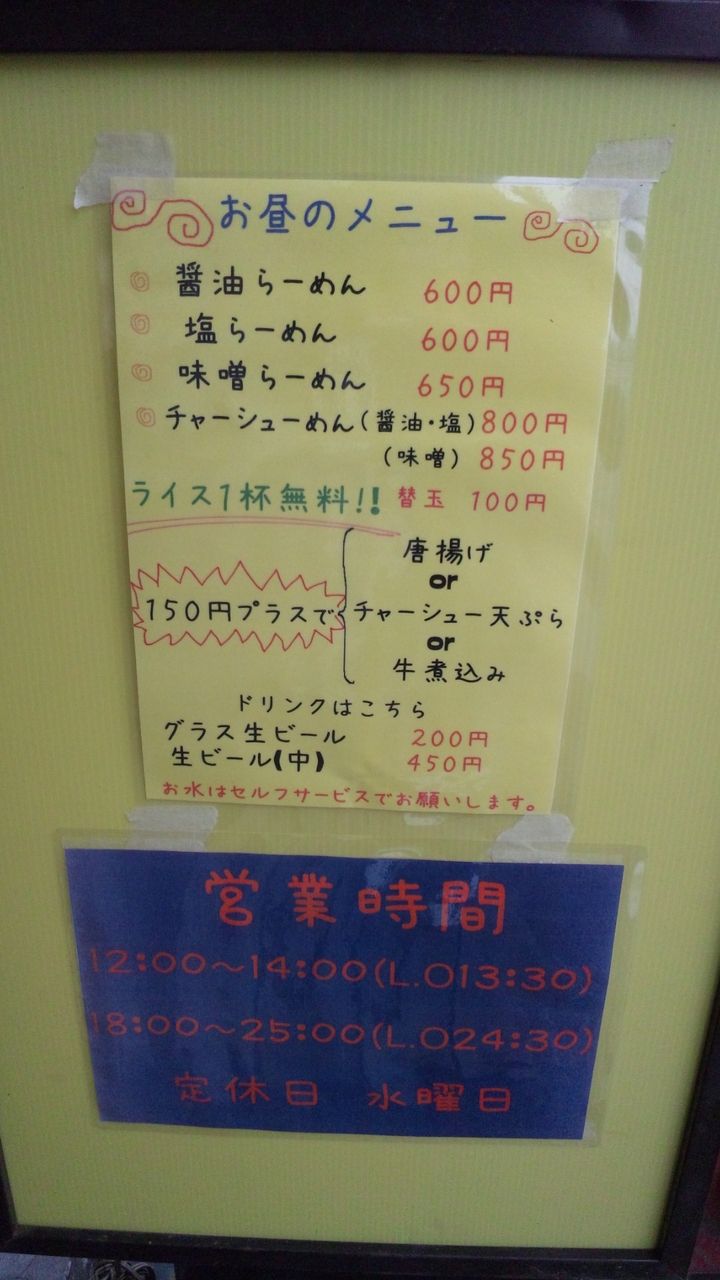 お昼のメニュー
醤油らーめん 600円
塩らーめん 600円
味噌らーめん 650円
チャーシューめん(醤油・塩)800円
(味噌) 850円
ライス1杯無料!! 替玉 100円
唐揚げ
or
150円プラスで チャーシュー天ぷら
or
牛煮込み
ドリンクはこちら
グラス生ビール 200円
生ビール(中) 450円
お水はセルフサービスでお願いします。
営業時間
12:00～14:00(L.O13:30)
18:00～25:00(L.O24:30)
定休日 水曜日